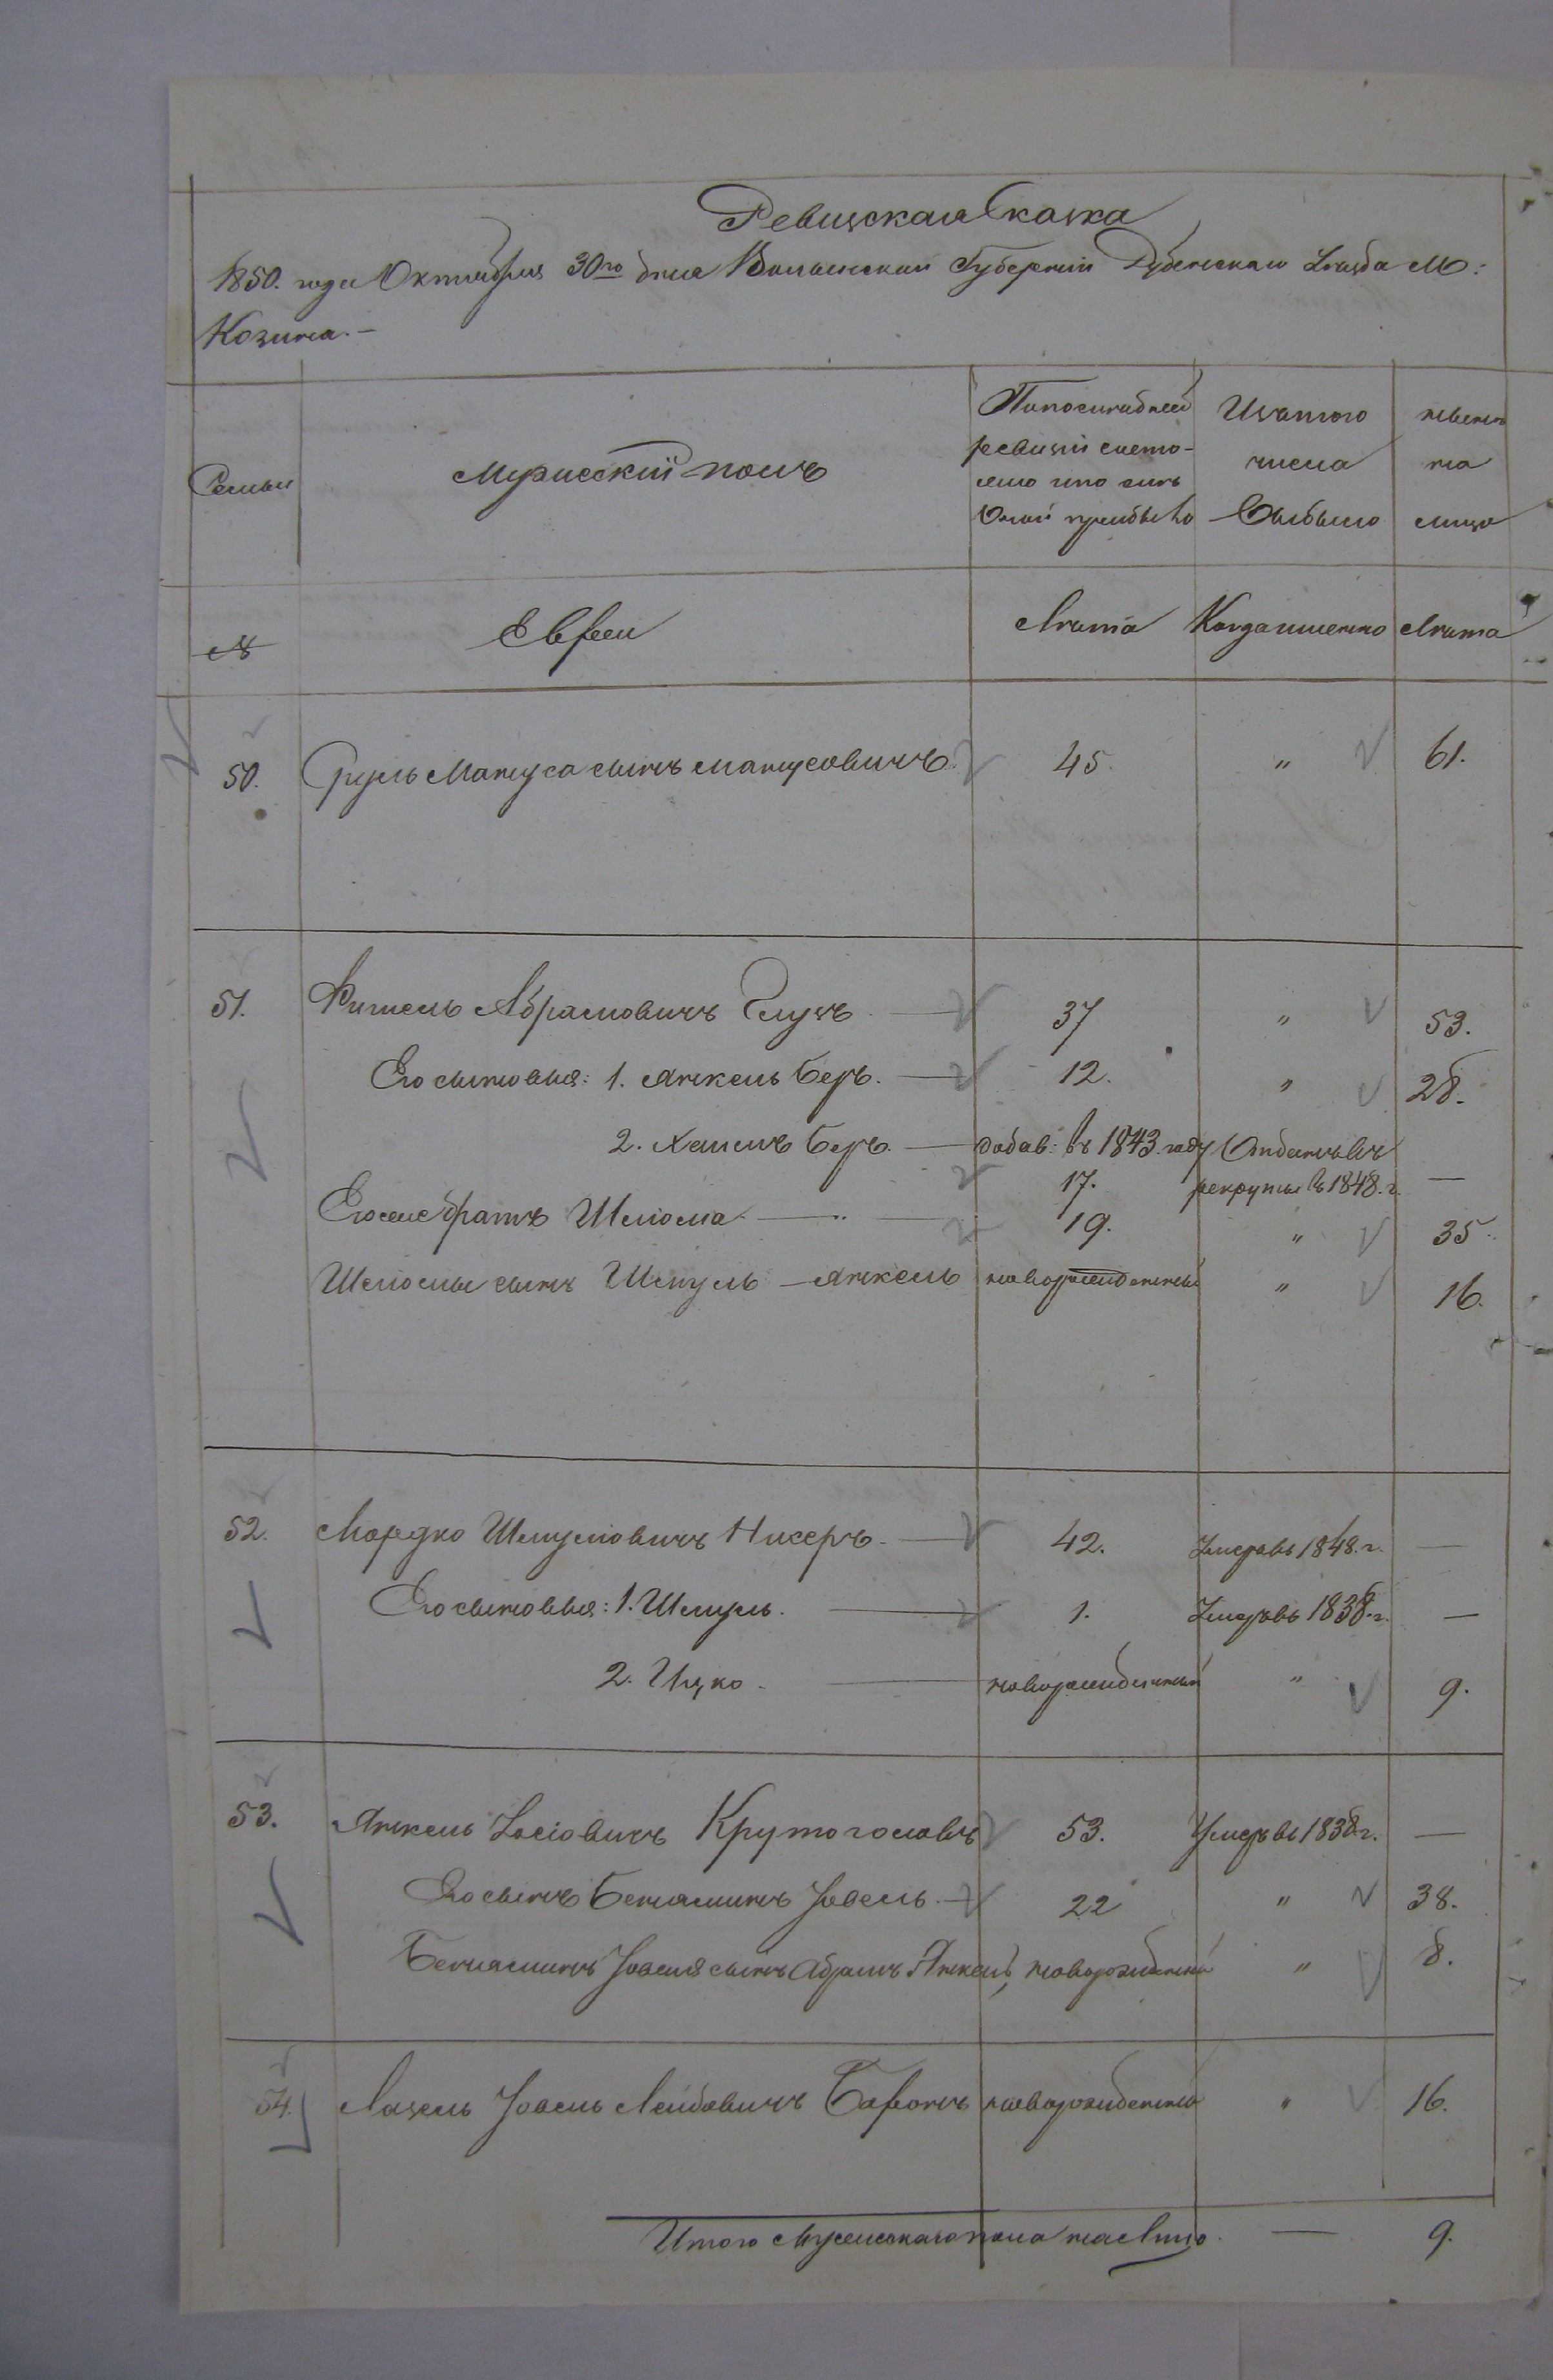 Ревизская Сказка
1850. года Октября 30го дня Волынской Губернии Дубенскаго Уезда М:
Козина. —
Семьи
Мужеский полъ
По последней ревизии состояло и по оной прибыло
Изъ того числа Выбыло
ныне на лицо
№
Евреи
Лета
Когда именно
Лета
50. Сруль Матуса сынъ Матусовичъ 45. " 61.
51. Фишель Абрамовичъ Глузъ — 37 " 53.
Его сыновья: 1. Янкель Беръ. — 12. " 28.
2. Хаимъ Беръ. — добав: въ 1843. году 17. Отданъ въ рекруты въ 1848. г. —
Его же братъ Шлиома — " — 19. " 35.
Шлиомы сынъ Шмуль – Янкель новорожденный " 16.
52. Мордко Шмулиовичъ Нисеръ. — 42. Умеръ въ 1848. г. —
Его сыновья: 1. Шмуль. — 1. Умеръ въ 1838. г. —
2. Ицко. — новорожденный " 9.
53. Янкель Іосіовичъ Крутоголовъ 53. Умеръ въ 1838 г. —
Его сынъ Бениаминъ Іовель. — 22 " 38.
Бениаминъ Іовеля сынъ Абрамъ Янкель, новорожденный " 8.
54. Лазель Іовель Лейбовичъ Баронъ новорожденный " 16.
Итого Мужескаго пола на Лицо. — 9.